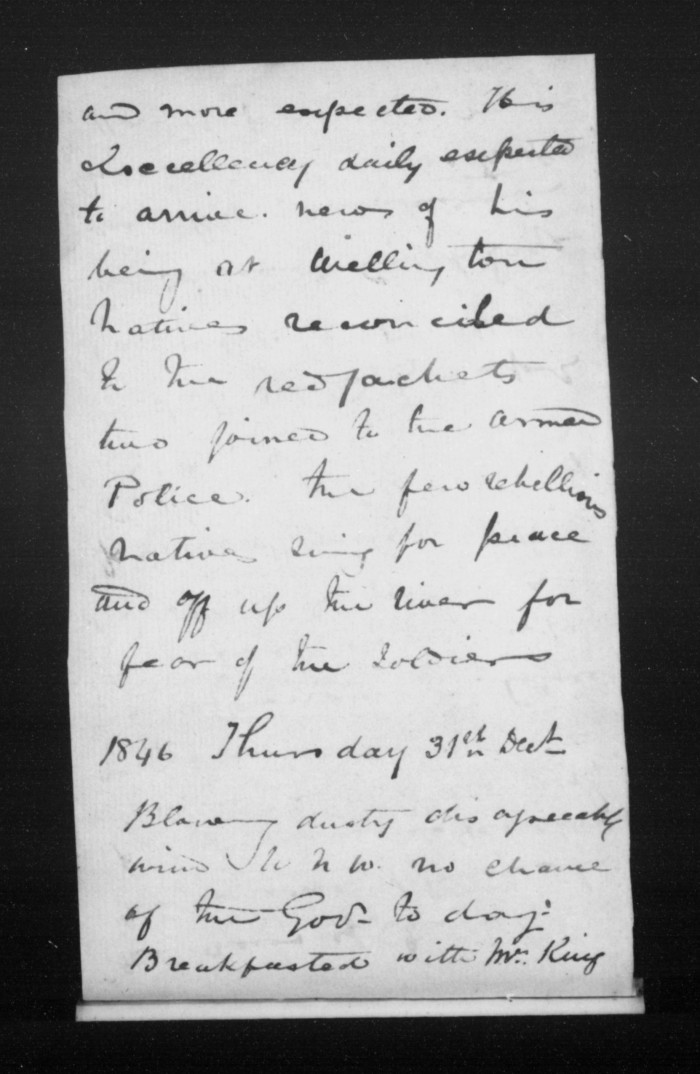 and more expected. His
Excellency daily expected
to arrive. news of his
being at Wellington
Natives reconciled
to the red jackets
two joined to the armed
Police. the few rebellious
natives suing for peace
and off up the river for
fear of the soldiers
1846 Thursday 31st Dect
Blowing dusty disagreeable
wind N W. no chance
of the Govr to day.
Breakfasted with Mr. King